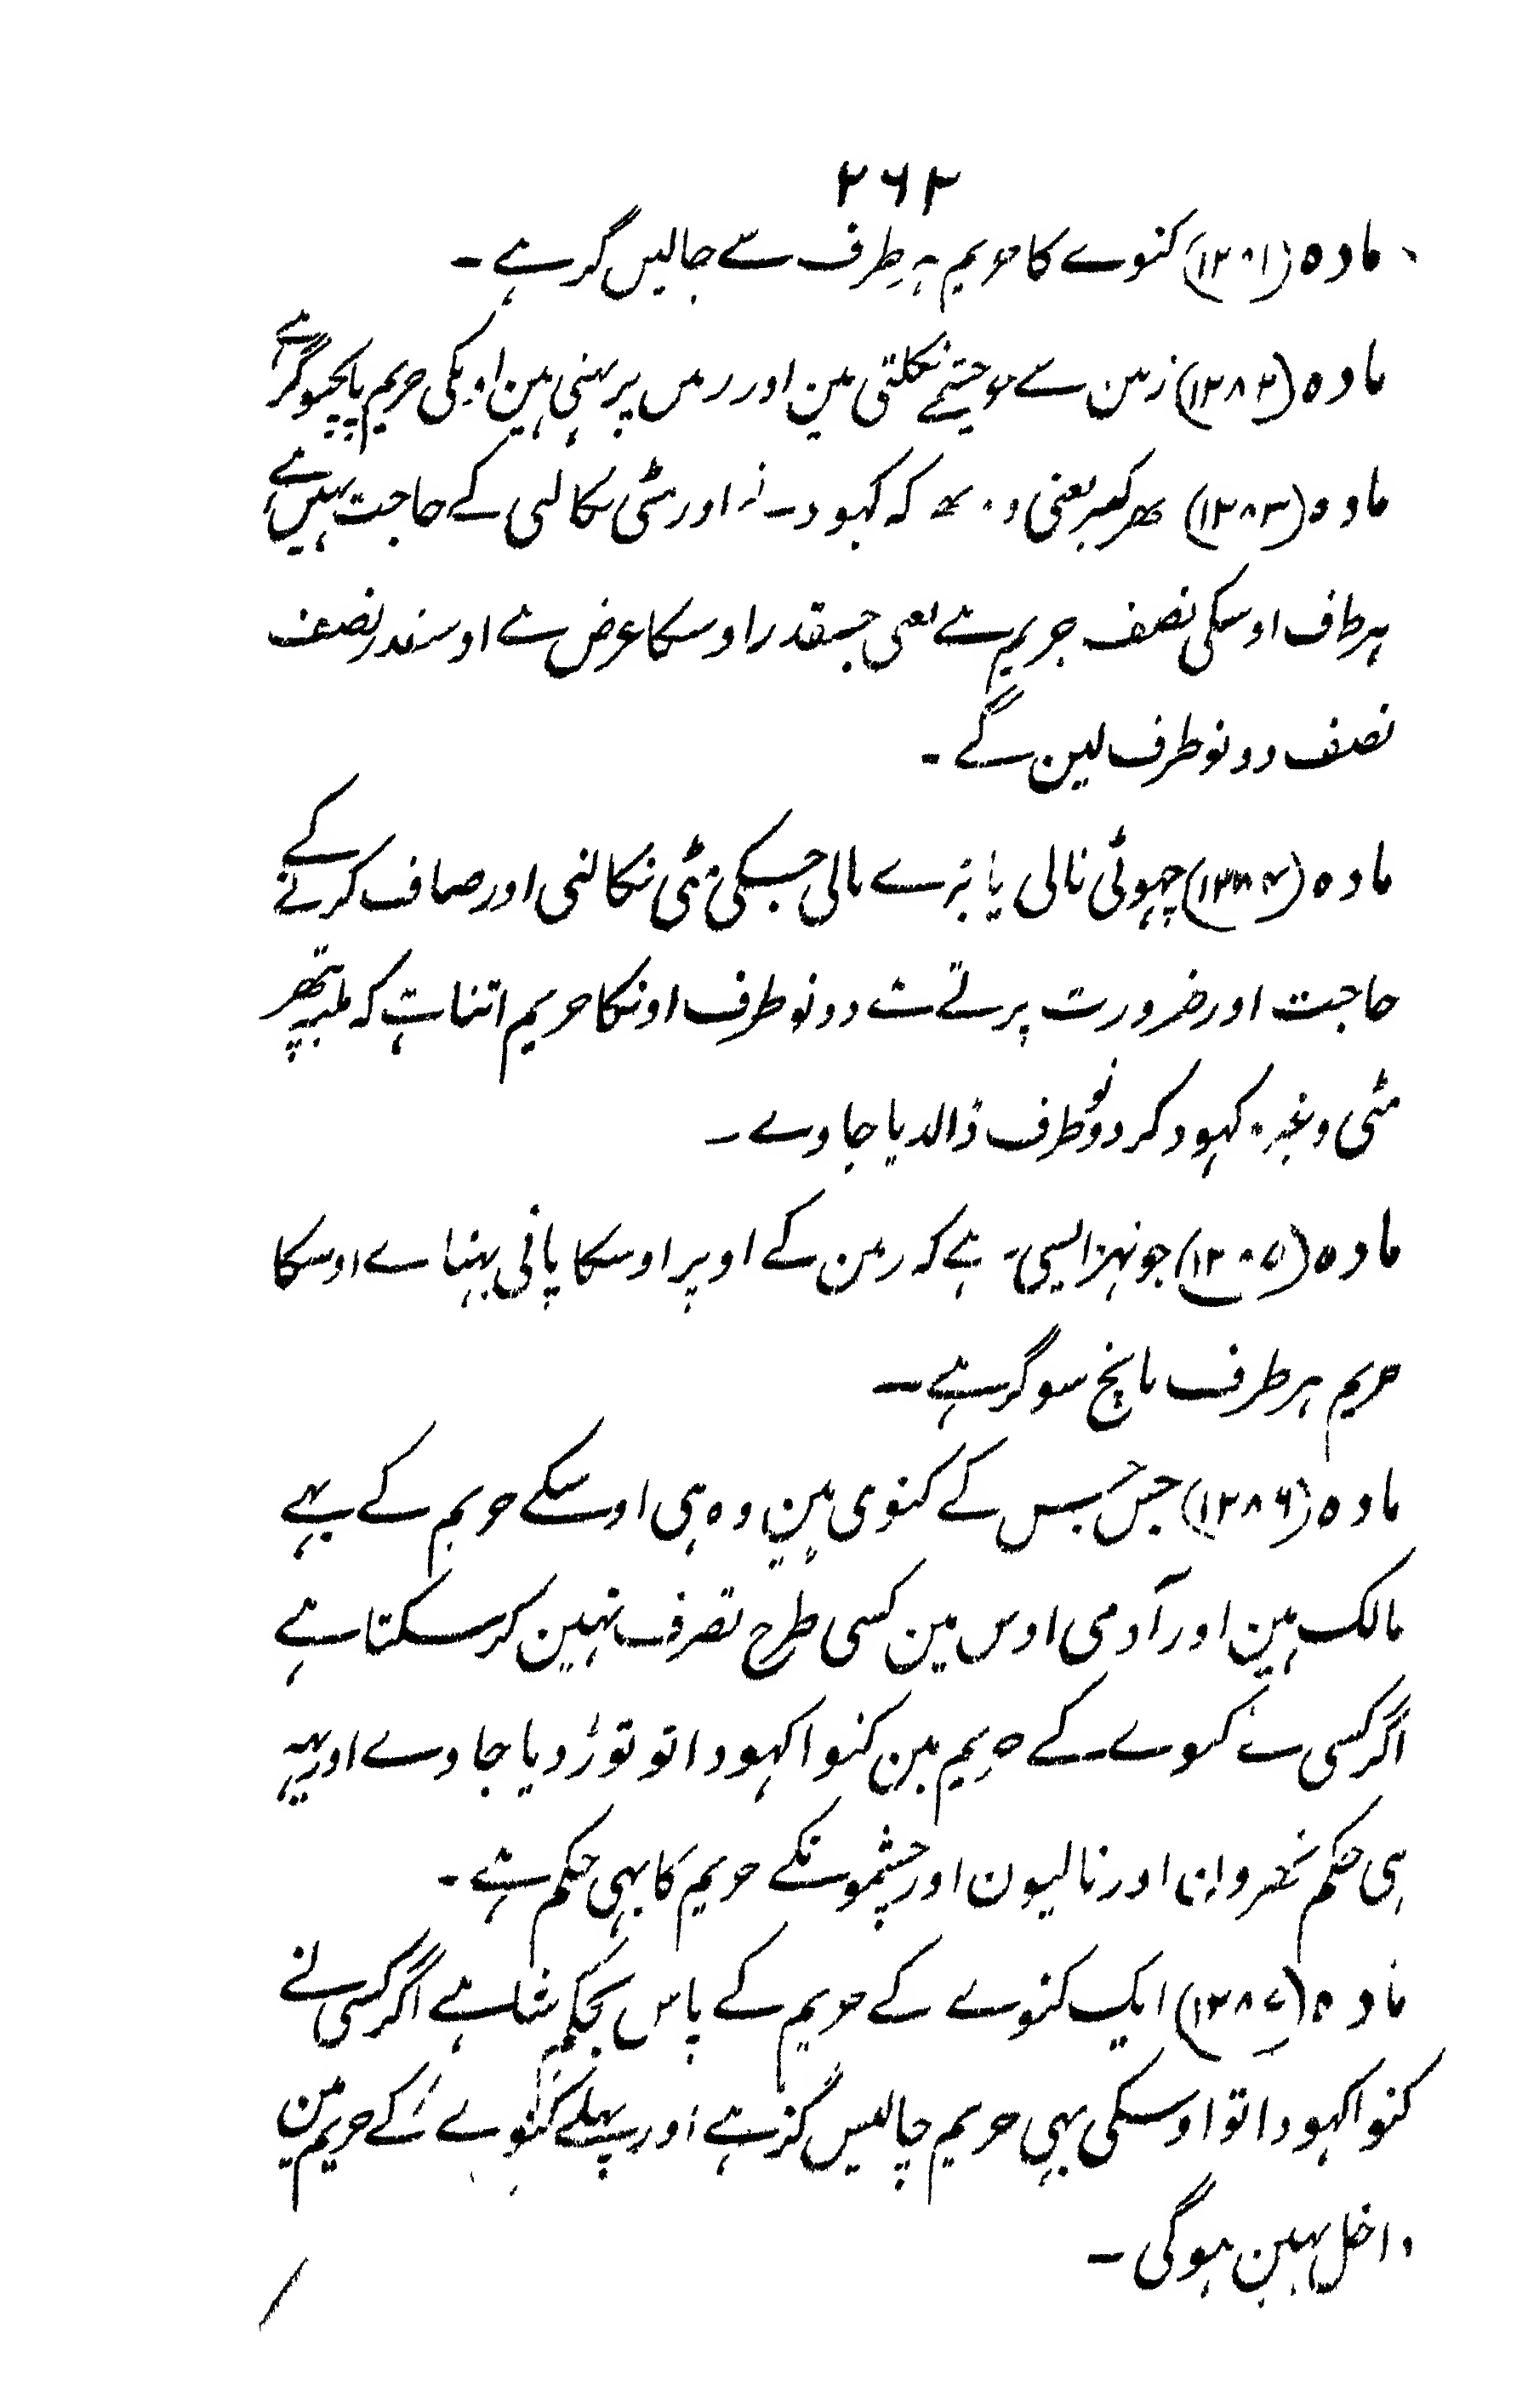 ۲۶۲
مادہ (۱۲۰۱) کنوے کا حریم ہر طرف سے چالیس گز ہے ۔
مادہ (۱۲۸۲) زمین سے جو چشمے نکلتی ہین اور زمین پر بہتی ہین اونکی حریم پانچسو گز ہے
مادہ (۱۲۸۳) نہر کبیر یعنی وہ کہ کہودنے اور مٹی نکالنی کے حاجت نہیں ہے
ہر طرف اوسکی نصف حریم ہے یعنی جسقدر اوسکا عرض ہے اوسقدر نصف
نصف دونو طرف لین گے ۔
مادہ (۱۲۸۴) چہوٹی نالی یا بڑے نالی جسکی مٹی نکالنی اور صاف کرنے کے
حاجت اور ضرورت پرتے ہے دونو طرف اونکا حریم اتنا ہے کہ ملبہ پتھر
مٹی وغیرہ کہود کر دونو طرف ڈالدیا جاوے ۔
مادہ (۱۲۰۵) جو نہر ایسی ہے کہ زمین کے اوپر اوسکا پانی بہتا ہے اوسکا
حریم ہر طرف پانچ سو گز ہے ۔
مادہ (۱۲۸۶) جس جس کے کنوی ہین وہ ہی اوسکے حریم کے بہے
مالک ہین اور آدمی اوس مین کسی طرح تصرف نہین کر سکتا ہے
اگر کسی نے کنوے کے حریم مین کنوا کہودا تو توڑ دیا جاوے اور یہہ
ہی حکم نہروان اور نالیون اور چشمونکے حریم کا بہی حکم ہے ۔
مادہ (۱۲۸۷) ایک کنوے کے حریم کے پاس اگر کسی نے
کنوا کہودا تو اوسکی بہی حریم چالیس گز ہے اور پہلے کنوے کے حریم مین
داخل نہین ہوگی ۔